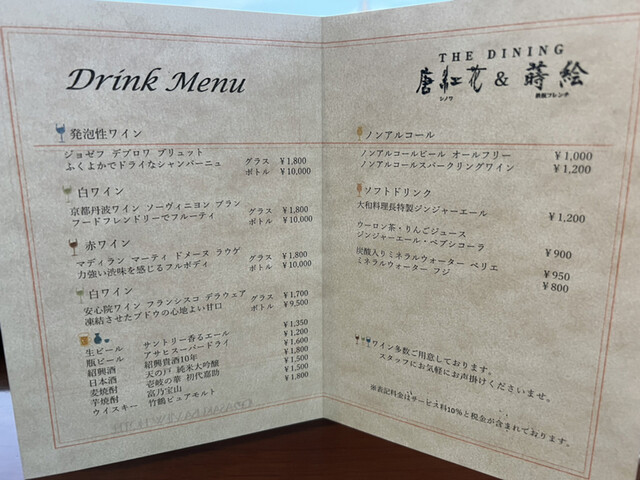 Drink Menu
発泡性ワイン
ジョゼフ デプロワ ブリュット
ふくよかでドライなシャンパーニュ グラス ¥1,800
ボトル ¥10,000
白ワイン
京都丹波ワイン ソーヴィニヨン ブラン
フードフレンドリーでフルーティ グラス ¥1,800
ボトル ¥10,000
赤ワイン
マディラン マーティ ドメーヌ ラウゲ
力強い渋味を感じるフルボディ グラス ¥1,800
ボトル ¥10,000
白ワイン
安心院ワイン フランシスコ デラウェア グラス ¥1,700
凍結させたブドウの心地よい甘口 ボトル ¥9,500
生ビール サントリー香るエール ¥1,350
瓶ビール アサヒスーパードライ ¥1,200
紹興酒 紹興貴酒10年 ¥1,600
日本酒 天の戸 純米大吟醸 ¥1,800
麦焼酎 壱岐の華 初代嘉助 ¥1,500
芋焼酎 富乃宝山 ¥1,500
ウイスキー 竹鶴ピュアモルト ¥1,800
THE DINING
唐紅花 & 蒔絵
シノワ 鉄板フレンチ
ノンアルコール
ノンアルコールビール オールフリー ¥1,000
ノンアルコールスパークリングワイン ¥1,200
ソフトドリンク
大和料理長特製ジンジャーエール ¥1,200
ウーロン茶・りんごジュース
ジンジャーエール・ペプシコーラ ¥900
炭酸入りミネラルウォーター ペリエ ¥950
ミネラルウォーター フジ ¥800
ワイン多数ご用意しております。
スタッフにお気軽にお声掛けくださいませ。
※表記料金はサービス料10%と税金が含まれております。